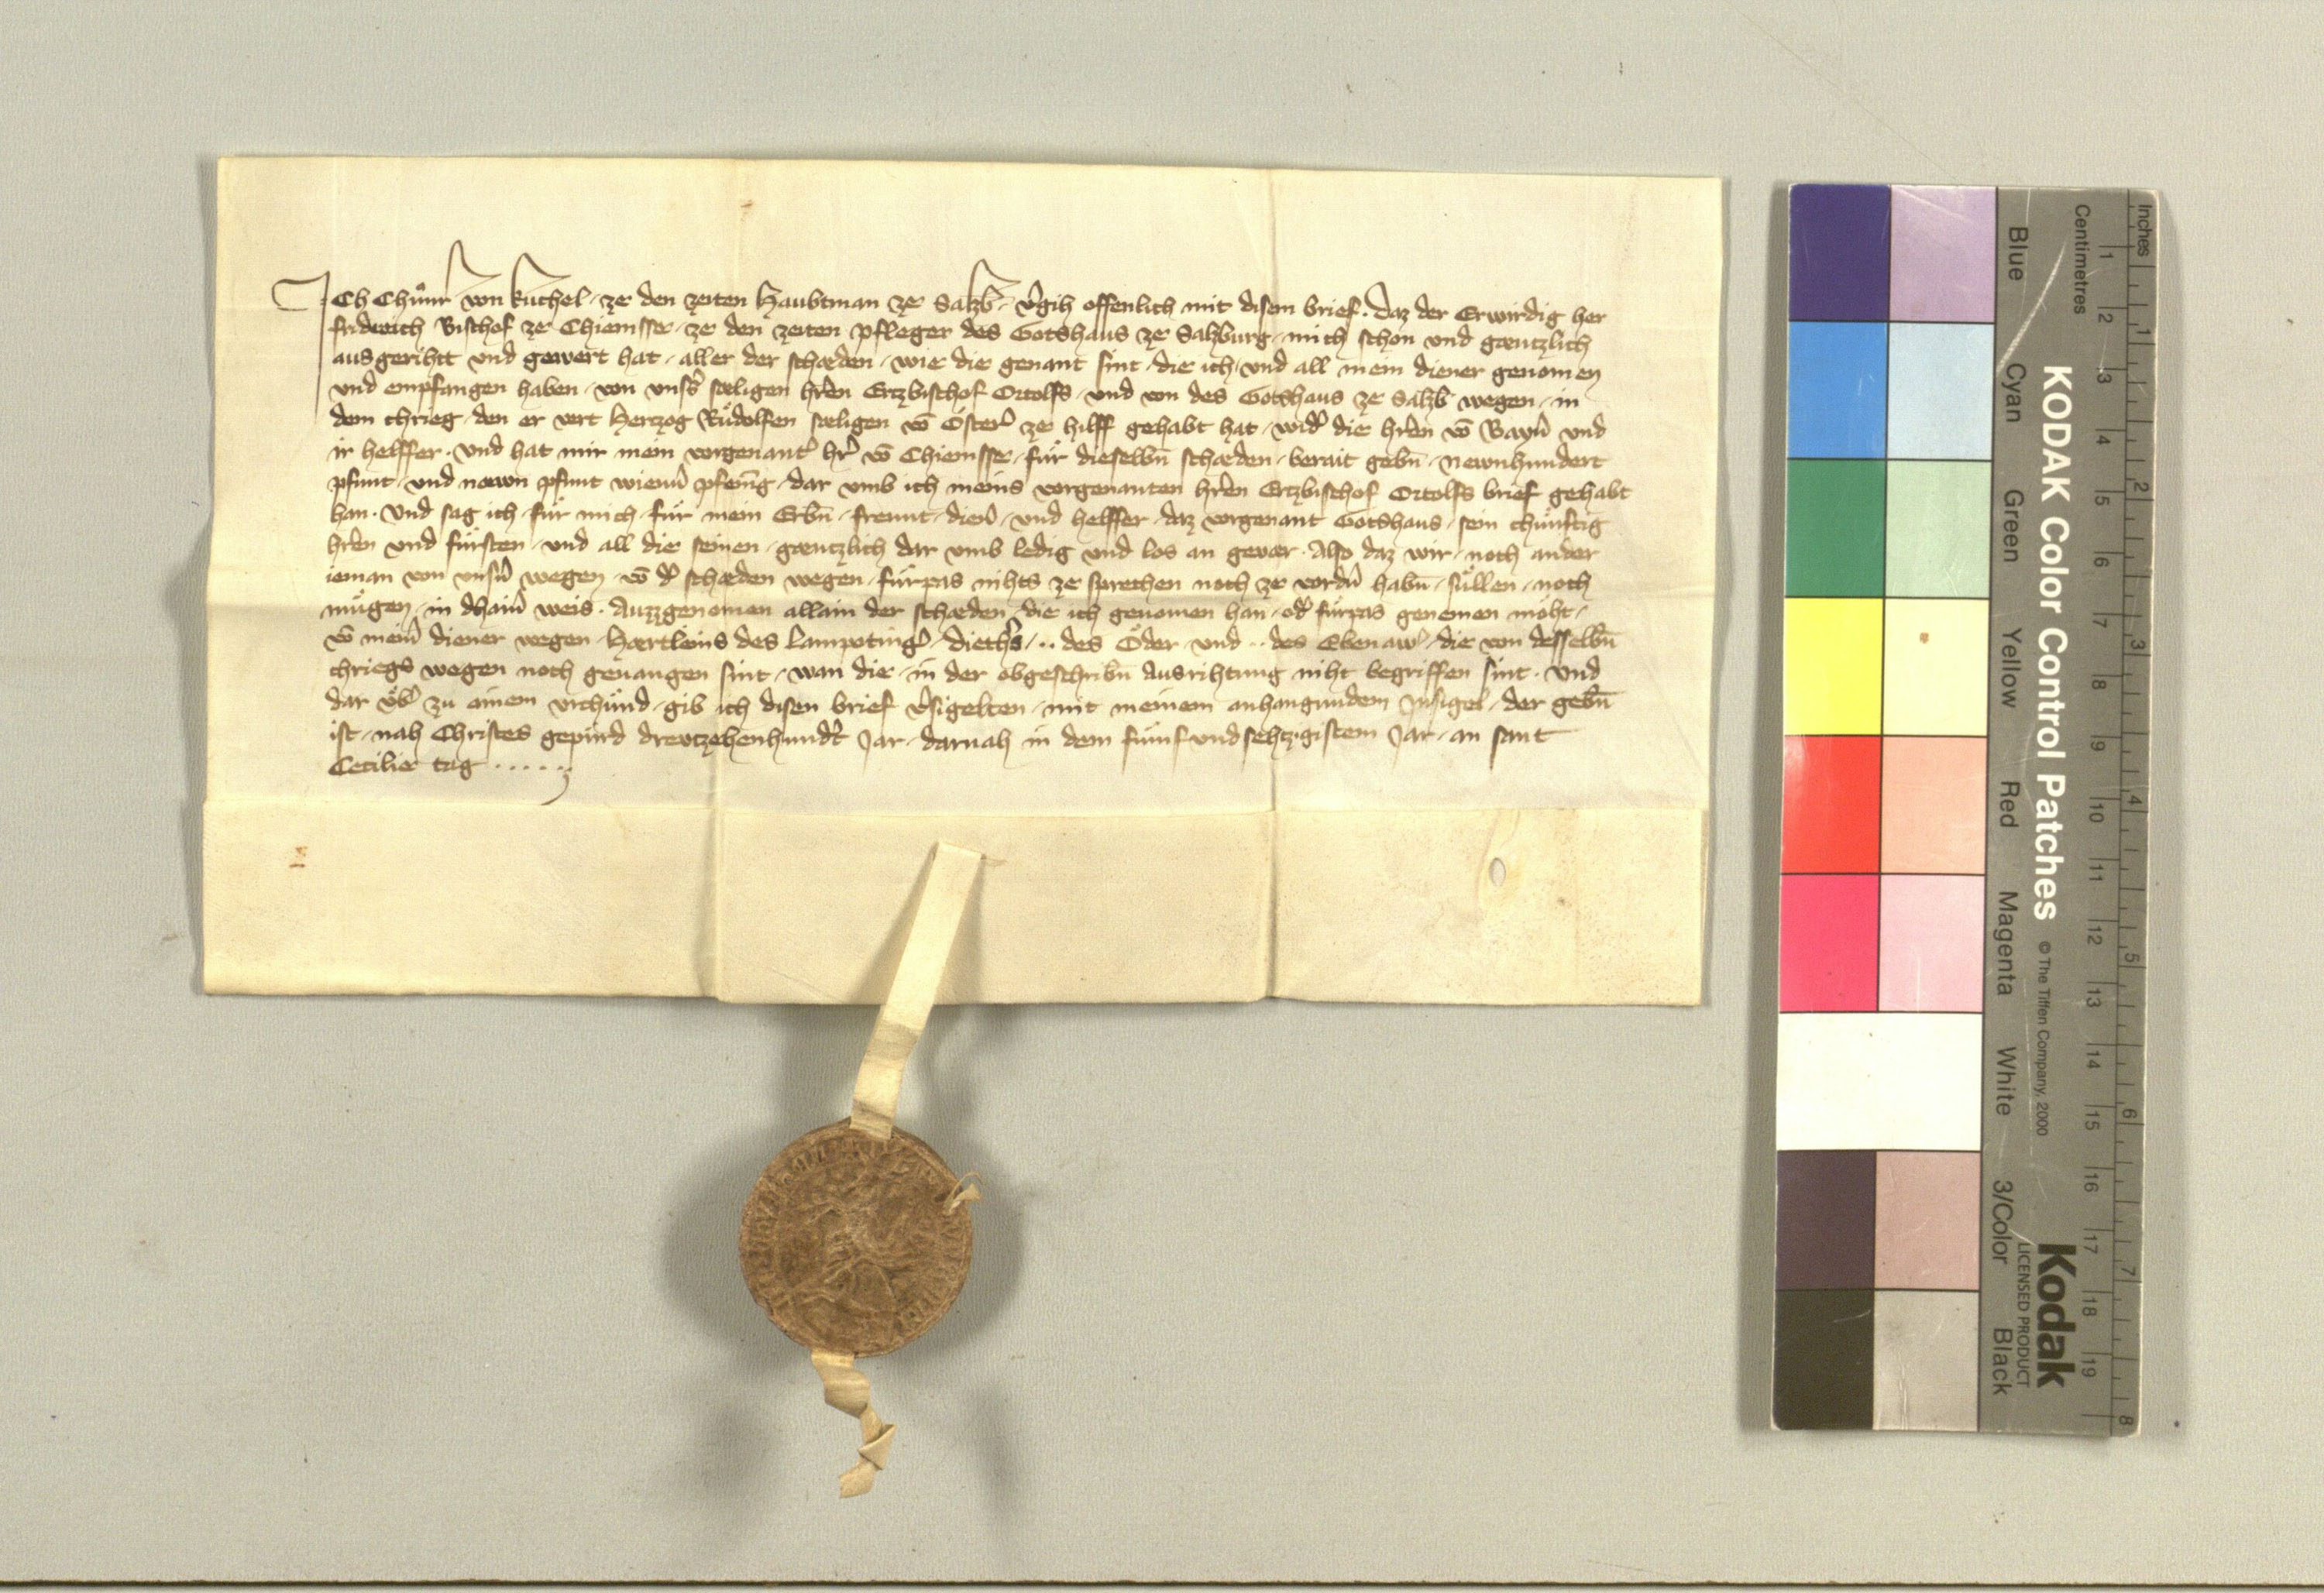 ICh Chunr von kuchel · ze den zeiten Haubtman ze Salzb̄ · v̓gih offenlich mit disem brief · Daz der Erwirdig her
fridreich Bischof ze Chiemsse · ze den zeiten pfleger des Gotshaus ze Salzburg · mich schon vnd gæntzlich
ausgerihtt vnd gewert hat · aller der schæden · wie die genant sint · die ich · vnd all mein diener genomen
vnd empfangen haben · von vnss̓ sæligen hr̓en Ertzbischof Ortolfs · vnd von des Gotshaus ze Salzb̄ wegen · in
dem chrieg · den er vert Hertzog Růdolfen sæligen vō Öster̓ ze hilff gehabt hat · wid̓ die hr̓en vō Bayn̓ vnd
ir helffer · Vnd hat mir mein vorgenant̓ hr̓ vō Chiemsse · für dieselbn̄ schæden · berait gebn̄ · Newnhundert
pfunt · vnd næwn pfunt wienn̓ pfenīg · dar vmb ich meins vorgenanten hr̓en Ertzbischof Ortolfs brief gehabt
han · Vnd sag ich · für mich · für mein Erbn̄ · freunt · dien̓ · vnd helffer · daz vorgenant Gotshaus · sein chünftig
hr̓en vnd fürsten · vnd all die seinen · gæntzlich dar vmb ledig vnd los an geuær · Also daz wir · noch ander
ieman von vnsn̓ wegen · vō d̓ schæden wegen · fürpas nihts ze sprechen noch ze vordn̓ habn̄ · süllen · noch
mügen · in dhain̓ weis · Auzzgenomen allain der schæden · die ich genomen han · od̓ fürpas genemen möht ·
vō mein̓ diener wegen · Hærtleins des Lampoting̓ · dieths̓ · ·· des Öder · vnd ·· des Ebenaw̓ · die von desselbn̄
chriegs wegen noch geuangen sint · wan die · in der obgeschribn̄ Ausrihtung niht begriffen sint · Vnd
dar üb̓ zu ainem vrchünd · gib ich disen brief v̓sigelten · mit meinem anhangundem Insigel · der gebn̄
ist · nah Christes gepürd drewtzehenhund̓t Jar · darnah in dem fünfvndsehtzigistem Jar · an sant
Cecilie tag · · · · ·
Inches
Centimetres
1 2 3 4 5 6 7 8
1 2 3 4 5 6 7 8 9 10 11 12 13 14 15 16 17 18 19
KODAK Color Control Patches © The Tiffen Company, 2000 Kodak
LICENSED PRODUCT
Blue Cyan Green Yellow Red Magenta White 3/Color Black